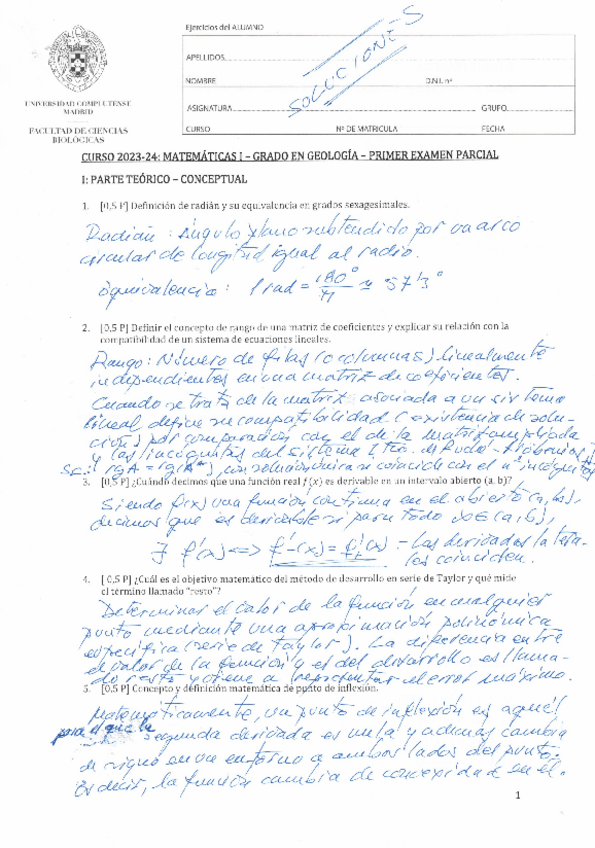 Ejercicios del ALUMNO
SOLUCIONES
APELLIDOS
NOMBRE D.N.I. nº
ASIGNATURA GRUPO
CURSO Nº DE MATRICULA FECHA
UNIVERSIDAD COMPLUTENSE
MADRID
FACULTAD DE CIENCIAS
BIOLÓGICAS
CURSO 2023-24: MATEMÁTICAS I – GRADO EN GEOLOGÍA – PRIMER EXAMEN PARCIAL
I: PARTE TEÓRICO – CONCEPTUAL
1. [0,5 P] Definición de radián y su equivalencia en grados sexagesimales.
Radián: Ángulo plano subtendido por un arco
circular de longitud igual al radio.
Equivalencia: 1 rad = 180°/π ≈ 57'3°
2. [0,5 P] Definir el concepto de rango de una matriz de coeficientes y explicar su relación con la
compatibilidad de un sistema de ecuaciones lineales.
Rango: Número de filas (o columnas) linealmente
independientes en una matriz de coeficientes.
Cuando se trata de la matriz asociada a un sistema
lineal define su compatibilidad (existencia de solu-
ciones) por comparación con el de la matriz ampliada
y las incógnitas del sistema
rg A = rg(A*), con solución única si coincide con el nº incógnitas
3. [0,5 P] ¿Cuándo decimos que una función real f(x) es derivable en un intervalo abierto (a, b)?
Siendo f(x) una función continua en el abierto (a,b),
decimos que es derivable si para todo x∈(a,b),
∃ f'(x) <=> f'-(x) = f'+(x) - Las derivadas late-
rales coinciden.
4. [0,5 P] ¿Cuál es el objetivo matemático del método de desarrollo en serie de Taylor y qué mide
el término llamado "resto"?
Determinar el valor de la función en cualquier
punto mediante una aproximación polinómica
específica (serie de Taylor). La diferencia entre
el valor de la función y el del desarrollo es llama-
do resto y viene a representar el error máximo.
5. [0,5 P] Concepto y definición matemática de punto de inflexión.
Matemáticamente, un punto de inflexión es aquel
para el que la segunda derivada es nula y además cambia
de signo en un entorno a ambos lados del punto.
Es decir, la función cambia de convexidad en él.
1